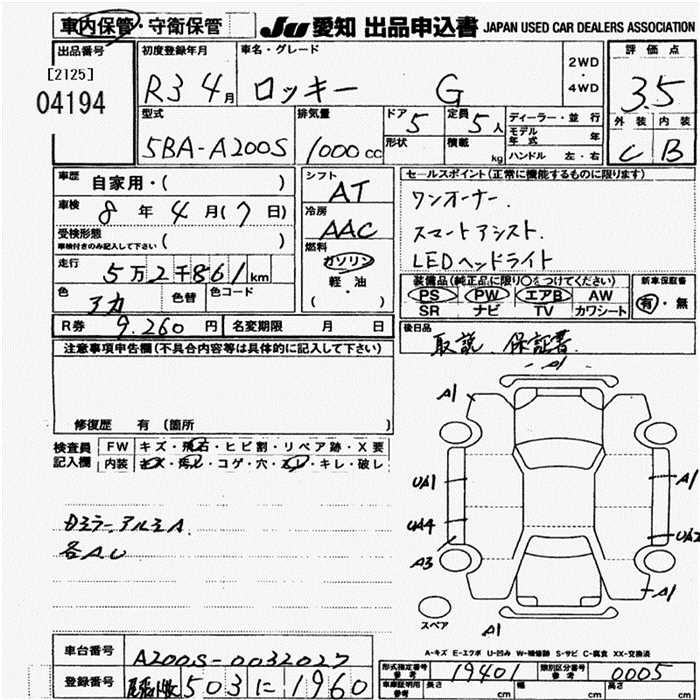 車内保管・守衛保管 JU 愛知 出品申込書 JAPAN USED CAR DEALERS ASSOCIATION
出品番号 初度登録年月 車名・グレード 2WD・4WD 評価点
[2125]
04194 R3 4月 ロッキー G 3.5
型式 排気量 ドア 5 定員 5人 ディーラー・並行 外装 内装
5BA-A200S 1000cc 形状 積載 kg モデル年式 年 C B
ハンドル 左・右
車歴 自家用・( ) シフト AT セールスポイント(正常に機能するものに限ります)
車検 8年4月(7日) 冷房 AAC ワンオーナー.
受検形態 車検付きのみ記入して下さい ( ) 燃料 ガソリン スマートアシスト.
走行 5万2千861km 軽油 LEDヘッドライト
( )
色 アカ 色替 色コード 装備品(純正品に限り○をつけてください) 新車保証書
PS PW エアB AW 有・無
SR ナビ TV カワシート
R券 9.260円 名変期限 月 日 後日品
取説. 保証書.
注意事項申告欄(不具合内容等は具体的に記入して下さい)
修復歴 有 (箇所 )
検査員記入欄 FW キズ・飛石・ヒビ割・リペア跡・X要
内装 キズ・汚れ・コゲ・穴・スレ・キレ・破レ
A1
A1
UA1 A1
UA4 UA2
A3
A1
A1
ミラーアルミA.
各AU
スペア
A-キズ E-エクボ U-凹み W-補修跡 S-サビ C-腐食 XX-交換済
車台番号 A200S-0032027
型式指定番号 参考 19401 類別区分番号 参考 0005
登録番号 503 に 1960
車庫証明用 参考 長さ cm 幅 cm 高さ cm